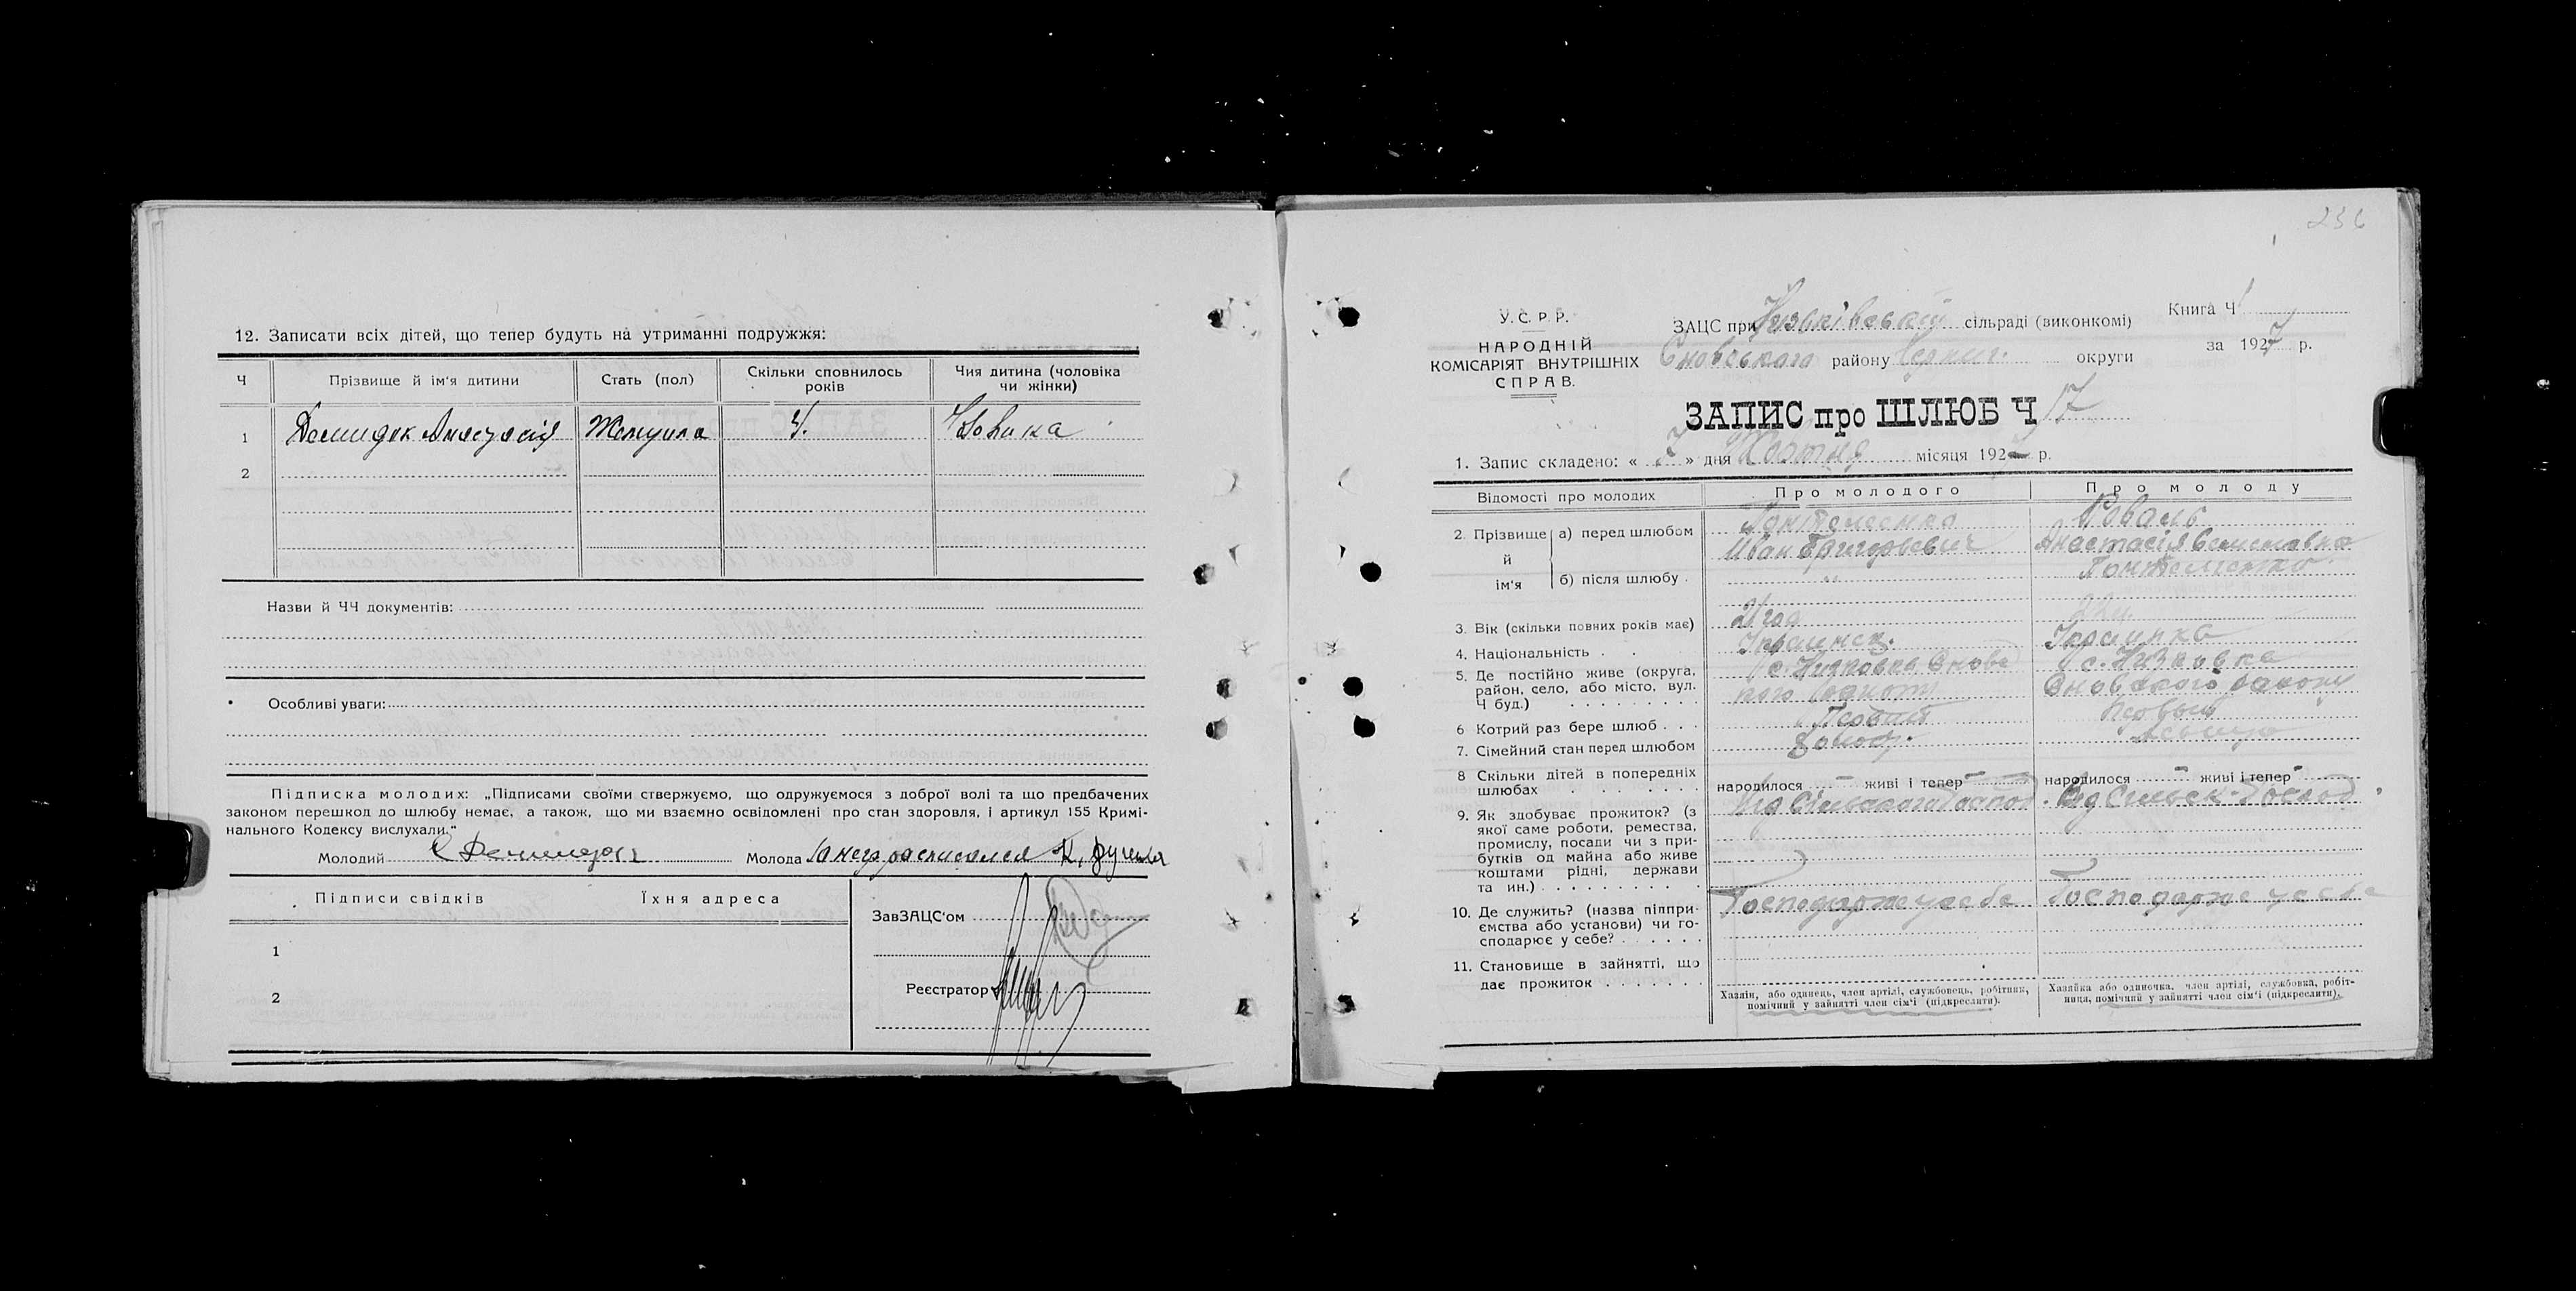 12. Записати всіх дітей, що тепер будуть на утриманні подружжя:
Ч Прізвище й ім'я дитини Стать (пол) Скільки сповнилось років Чия дитина (чоловіка чи жінки)
1 Демидок Анастасія 4. Чловика
2
Назви й ЧЧ документів:
Особливі уваги:
Підписка молодих: „Підписами своїми стверджуємо, що одружуємося з доброї волі та що предбачених
законом перешкод до шлюбу немає, а також, що ми взаємно освідомлені про стан здоровля, і артикул 155 Кримі-
нального Кодексу вислухали."
Молодий Молода расписался К.
Підписи свідків Їхня адреса
ЗавЗАЦС'ом
1
Реєстратор
2
236
У.С.Р.Р.
НАРОДНІЙ
КОМІСАРІЯТ ВНУТРІШНІХ
СПРАВ.
ЗАЦС при Низківській сільраді (виконкомі)
Сновського району Черниг. округи
Книга Ч 1
за 1927 р.
ЗАПИС про ШЛЮБ Ч 17
1. Запис складено: « 7 » дня Жовтня місяця 192 р.
Відомості про молодих Про молодого Про молоду
2. Прізвище й ім'я а) перед шлюбом Пантелеенко Коваль
Иван Григорьевич Анастасія
б) після шлюбу " Пантелеенко
3. Вік (скільки повних років має) 21 год
4. Національність Украинец. Украинка
5. Де постійно живе (округа, район, село, або місто, вул. Ч буд.) с. Низковка Сновс с. Низковка
кого Сновского району
6 Котрий раз бере шлюб Первый Первый
7. Сімейний стан перед шлюбом Холост.
8 Скільки дітей в попередніх шлюбах народилося — живі і тепер — народилося — живі і тепер —
9. Як здобуває прожиток? (з якої саме роботи, ремества, промислу, посади чи з прибутків од майна або живе коштами рідні, держави та ин.) Від Сільського Господ. Від Сильск. Господ.
10. Де служить? (назва підприємства або установи) чи господарює у себе? Господарже у себе Господарже у себе
11. Становище в зайнятті, що дає прожиток
Хазяїн, або одинець, член артілі, службовець, робітник, помічний у зайнятті член сім'ї (підкреслити).
Хазяйка або одиночка, член артілі, службовка, робітниця, помічний у зайнятті член сім'ї (підкреслити).